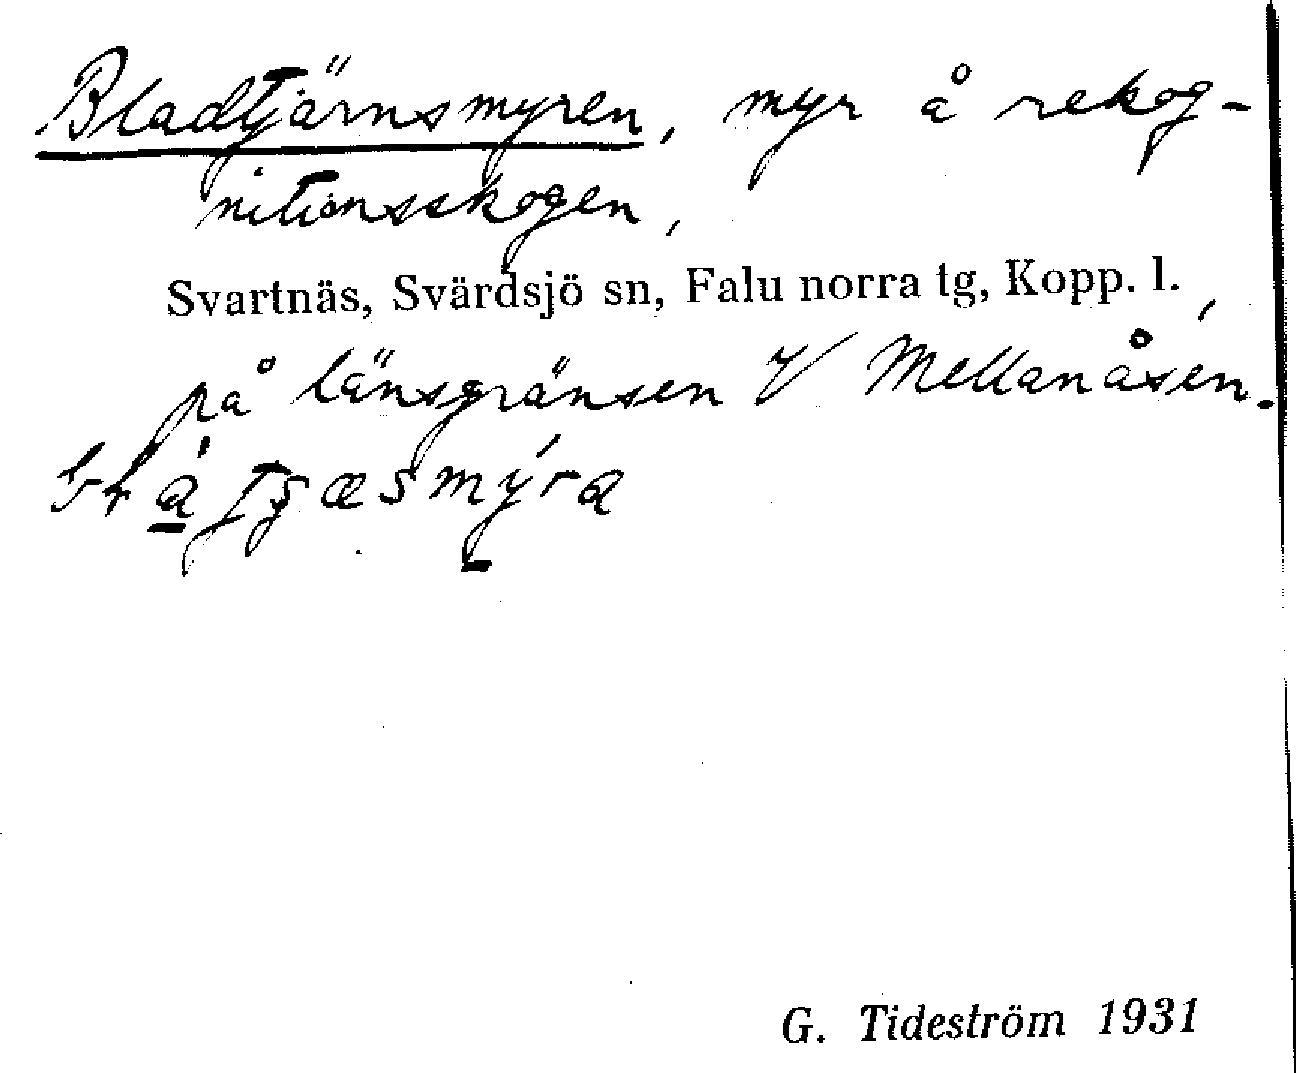 Bladtjärnsmyren, myr å rekog-
nitionsskogen,
Svartnäs, Svärdsjö sn, Falu norra tg, Kopp. l.,
på länsgränsen V Mellanåsen.
G. Tideström 1931